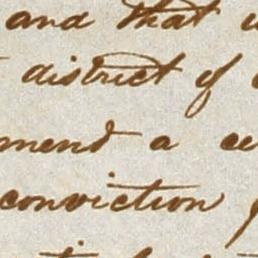 and that
district of
mend a
conviction